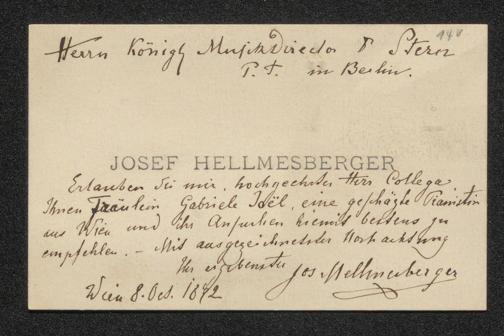 140
Herrn Königl Musikdirector J Stern
P. T. in Berlin.
JOSEF HELLMESBERGER
Erlauben Sie mir, hochgeehrter Herr Collega
Ihnen Fräulein Gabriele Joël, eine geschäzte Pianistin
aus Wien und ihr Ansuchen hiemit bestens zu
empfehlen. – Mit ausgezeichneter Hochachtung
Ihr ergebenster Jos. Hellmesberger
Wien 8. Oct. 1872